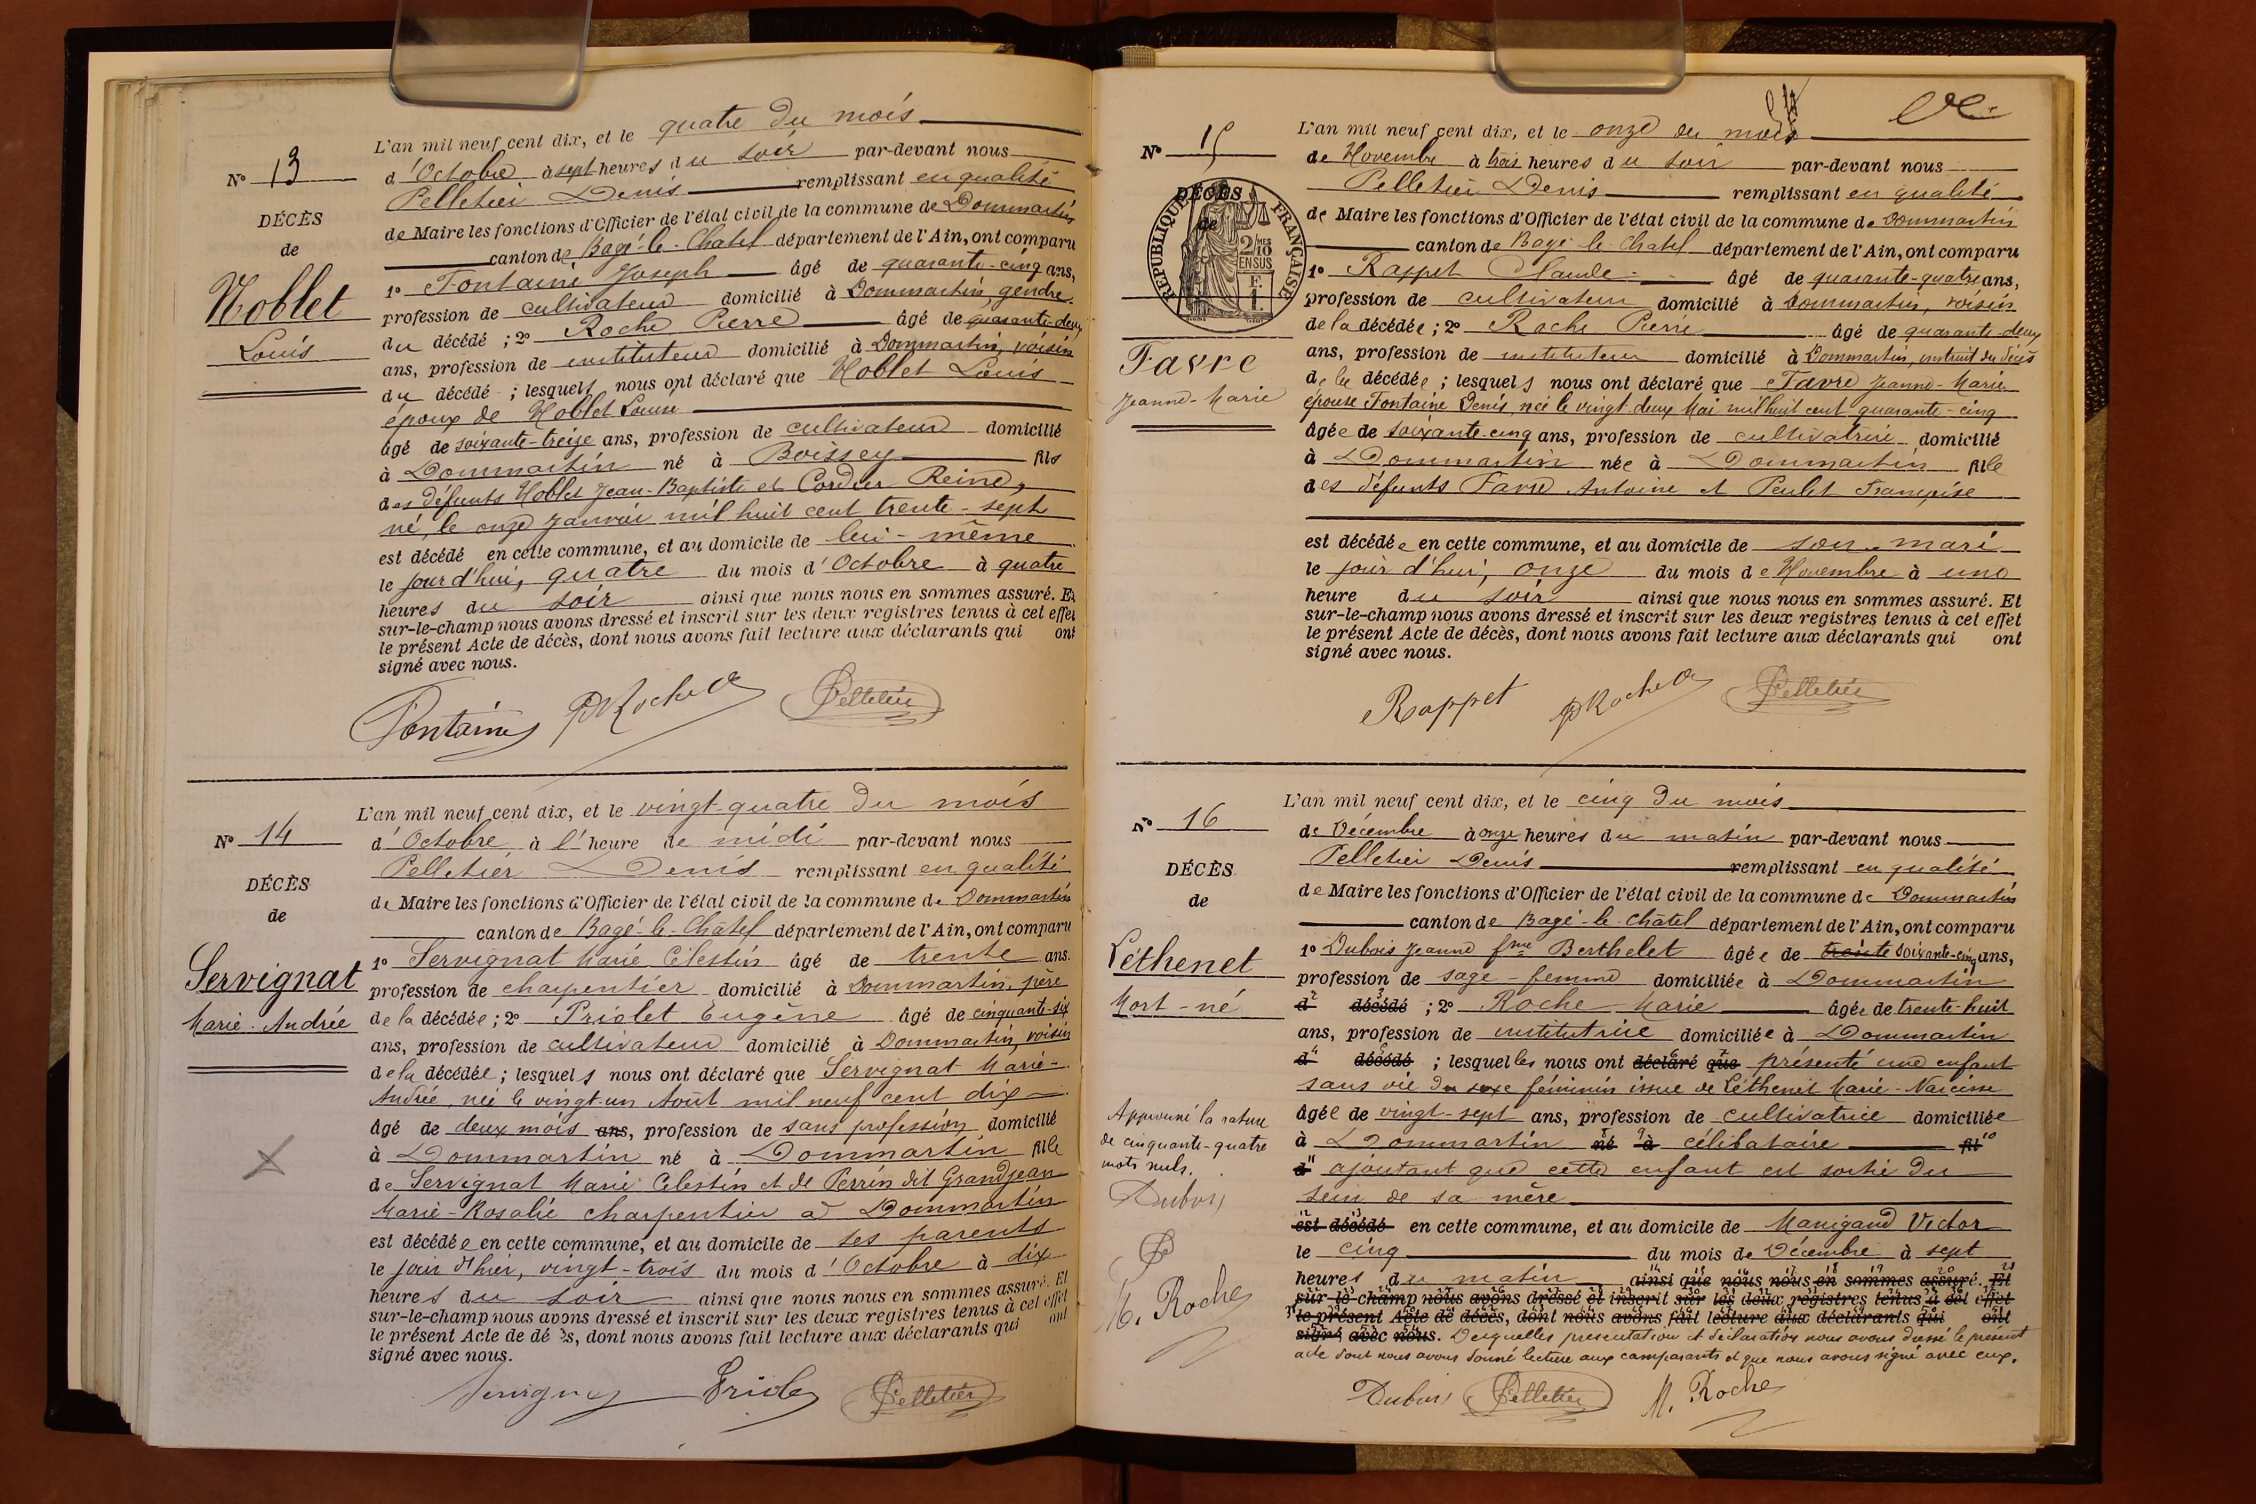 L'an mil neuf cent dix, et le quatre du mois
N° 13
d'Octobre à sept heures du soir par-devant nous
Pelletier Denis remplissant en qualité
DÉCÈS
de Maire les fonctions d'Officier de l'état civil de la commune de Dommartin
de
canton de Bagé-le-Châtel département de l'Ain, ont comparu
Noblet
1° Fontaine Joseph âgé de quarante-cinq ans,
profession de cultivateur domicilié à Dommartin, gendre
Louis
du décédé ; 2° Roche Pierre âgé de quarante-deux
ans, profession de instituteur domicilié à Dommartin, voisin
du décédé ; lesquels nous ont déclaré que Noblet Louis
époux de Noblet Louise
âgé de soixante-treize ans, profession de cultivateur domicilié
à Dommartin né à Boissey fils
des défunts Noblet Jean-Baptiste et Cordier Reine,
né, le onze Janvier mil huit cent trente-sept
est décédé en cette commune, et au domicile de lui-même
le jour d'hui, quatre du mois d'Octobre à quatre
heures du soir ainsi que nous nous en sommes assuré. Et
sur-le-champ nous avons dressé et inscrit sur les deux registres tenus à cet effet
le présent Acte de décès, dont nous avons fait lecture aux déclarants qui ont
signé avec nous.
Fontaine PRoche Pelletier
L'an mil neuf cent dix, et le vingt-quatre du mois
N° 14
d'Octobre à l'heure de midi par-devant nous
Pelletier Denis remplissant en qualité
DÉCÈS
de Maire les fonctions d'Officier de l'état civil de la commune de Dommartin
de
canton de Bagé-le-Châtel département de l'Ain, ont comparu
Servignat
1° Servignat Marie Célestin âgé de trente ans.
profession de charpentier domicilié à Dommartin, père
Marie-Andrée
de la décédée ; 2° Priolet Eugène âgé de cinquante-six
ans, profession de cultivateur domicilié à Dommartin, voisin
de la décédée ; lesquels nous ont déclaré que Servignat Marie-
Andrée, née le vingt-un Août mil neuf cent dix
âgé de deux mois ans, profession de sans profession domicilié
à Dommartin né à Dommartin fille
de Servignat Marie Célestin et de Perrin dit Grandjean
Marie-Rosalie charpentier à Dommartin
est décédée en cette commune, et au domicile de ses parents
le jour d'hier, vingt-trois du mois d'Octobre à dix
heures du soir ainsi que nous nous en sommes assuré. Et
sur-le-champ nous avons dressé et inscrit sur les deux registres tenus à cet effet
le présent Acte de décès, dont nous avons fait lecture aux déclarants qui ont
signé avec nous.
Servignat Priolet Pelletier
L'an mil neuf cent dix, et le onze du mois
N° 15
de Novembre à trois heures du soir par-devant nous
Pelletier Denis remplissant en qualité
DÉCÈS
de
RÉPUBLIQUE FRANÇAISE
2/10 MES
EN SUS
F.
1.
de Maire les fonctions d'Officier de l'état civil de la commune de Dommartin
canton de Bagé-le-Chatel département de l'Ain, ont comparu
1° Rappet Claude âgé de quarante-quatre ans,
profession de cultivateur domicilié à Dommartin, voisin
de la décédée ; 2° Roche Pierre âgé de quarante-deux
Favre
ans, profession de instituteur domicilié à Dommartin, instruit du décès
Jeanne-Marie
de la décédée ; lesquels nous ont déclaré que Favre Jeanne-Marie
épouse Fontaine Denis née le vingt-deux Mai mil huit cent quarante-cinq
âgée de soixante-cinq ans, profession de cultivatrice domicilié
à Dommartin née à Dommartin fille
des défunts Favre Antoine et Peulet Françoise
est décédée en cette commune, et au domicile de son mari
le jour d'hui, onze du mois de Novembre à une
heure du soir ainsi que nous nous en sommes assuré. Et
sur-le-champ nous avons dressé et inscrit sur les deux registres tenus à cet effet
le présent Acte de décès, dont nous avons fait lecture aux déclarants qui ont
signé avec nous.
Rappet PRoche Pelletier
L'an mil neuf cent dix, et le cinq du mois
N° 16
de Décembre à onze heures du matin par-devant nous
Pelletier Denis remplissant en qualité
DÉCÈS
de Maire les fonctions d'Officier de l'état civil de la commune de Dommartin
de
canton de Bagé-le-Châtel département de l'Ain, ont comparu
Léthenet
1° Dubois Jeanne fme Berthelet âgée de trente soixante-cinq ans,
profession de sage-femme domiciliée à Dommartin
Mort-né
d décédé ; 2° Roche Marie âgée de trente-huit
ans, profession de institutrice domiciliée à Dommartin
d décédé ; lesquelles nous ont déclaré que présenté une enfant
sans vie du sexe féminin issue de Léthenet Marie-Narcisse
âgée de vingt-sept ans, profession de cultivatrice domiciliée
à Dommartin né à célibataire fil
d ajoutant que cette enfant est sortie du
sein de sa mère
est décédé en cette commune, et au domicile de Manigand Victor
le cinq du mois de Décembre à sept
heures du matin ainsi que nous nous en sommes assuré. Et
sur-le-champ nous avons dressé et inscrit sur les deux registres tenus à cet effet
le présent Acte de décès, dont nous avons fait lecture aux déclarants qui ont
signé avec nous. Desquelles présentation et déclaration nous avons dressé le présent
acte dont nous avons donné lecture aux comparants et que nous avons signé avec eux.
Approuvé la rature
de cinquante-quatre
mots nuls.
Dubois
M. Roche
Dubois Pelletier M. Roche